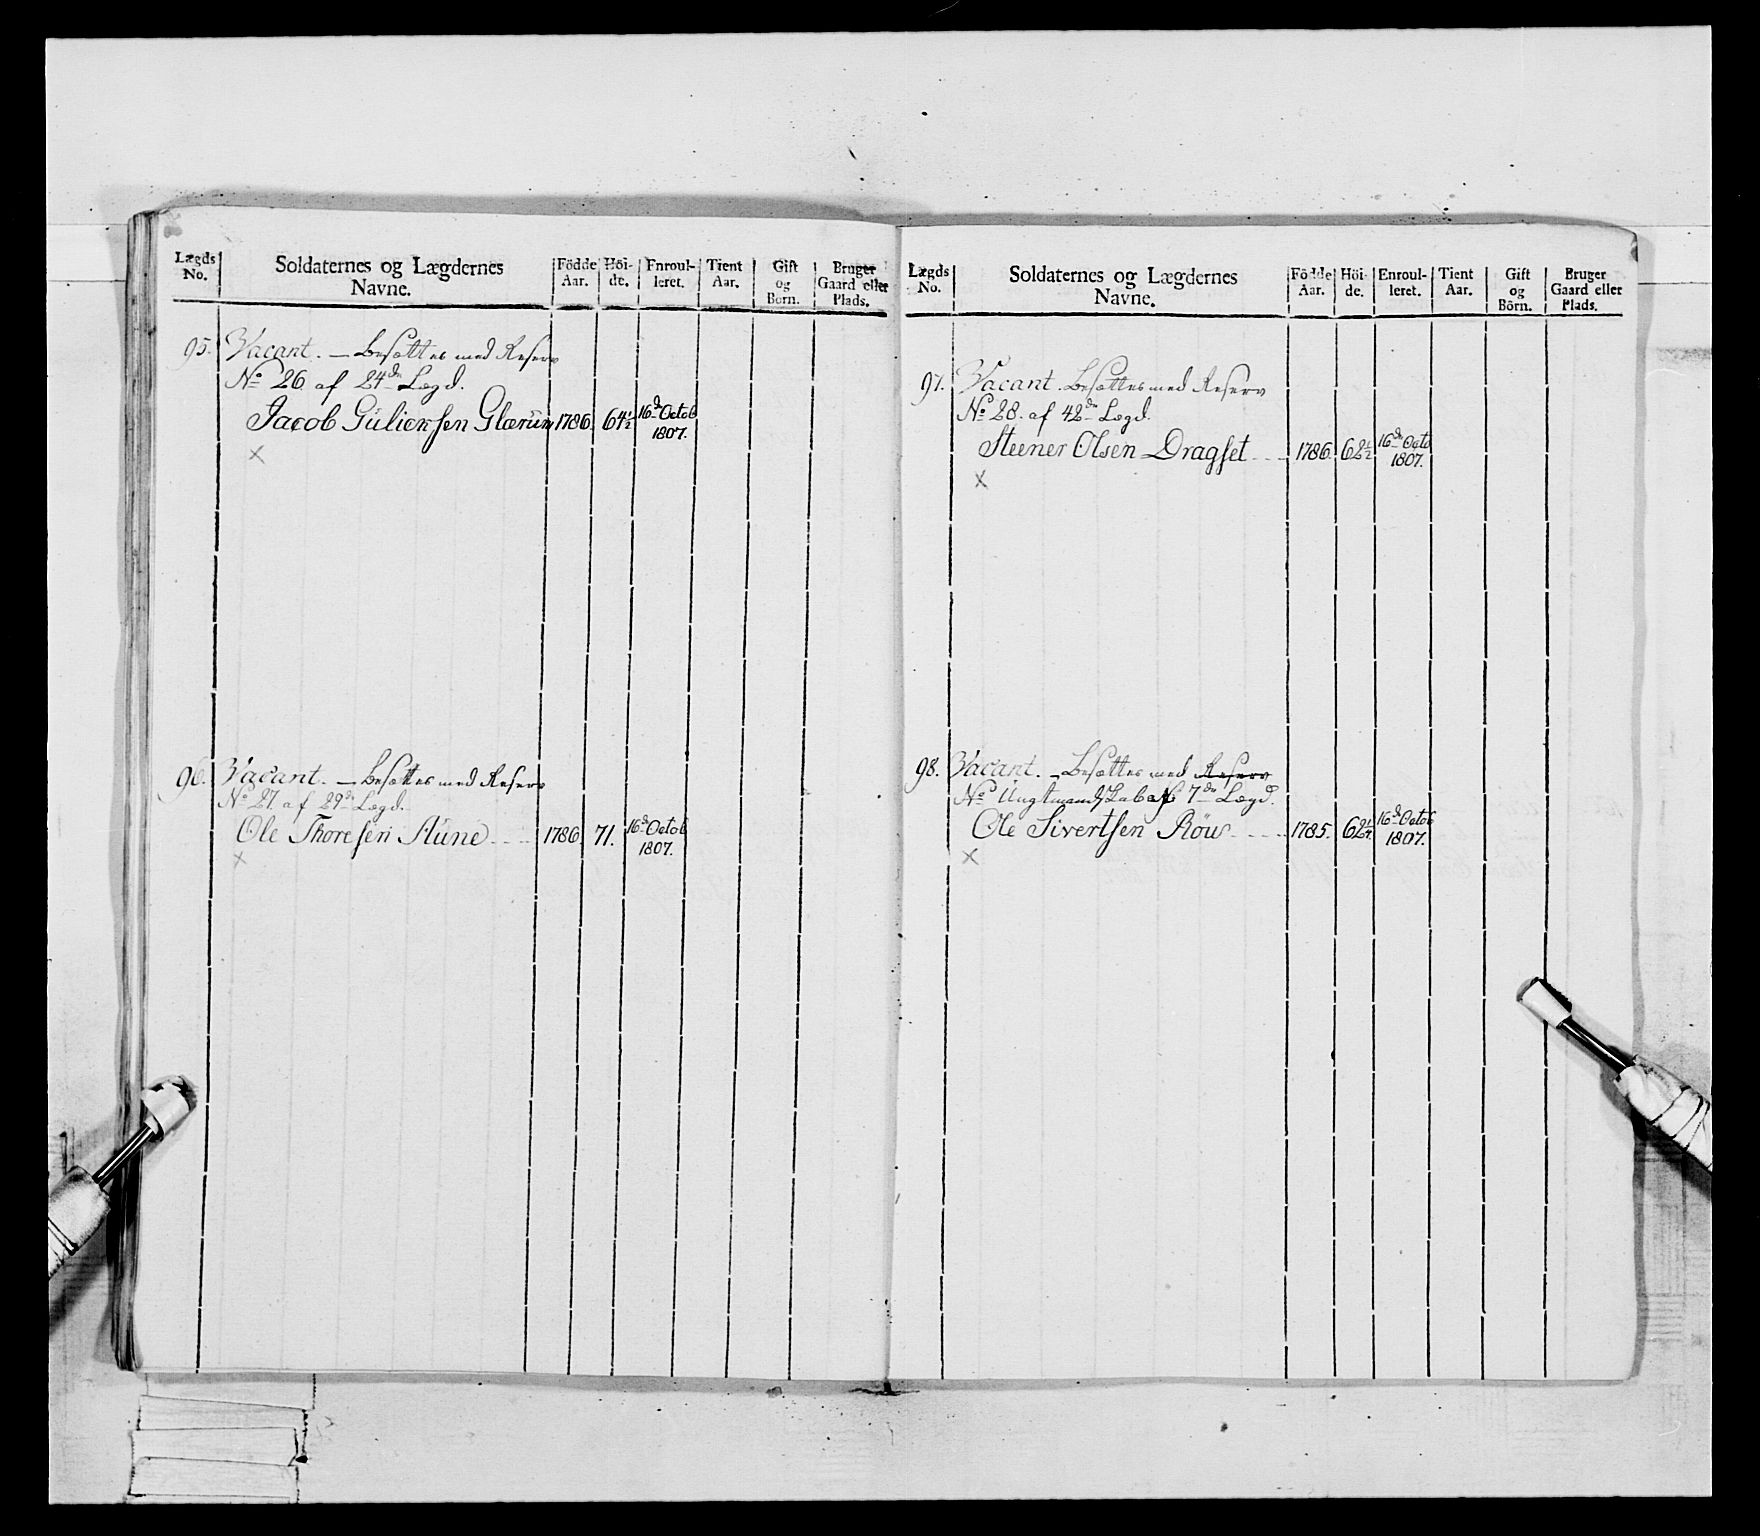 Lægds No. Soldaternes og Lægdernes Navne. Födde Aar. Höi-de. Enroul-leret. Tient Aar. Gift og Börn. Bruger Gaard eller Plads.
95. Vacant. — Besættes med Reserv
No 26 af 24de Lægd.
Jacob Gulichsen Glærum 1786. 64½ 16de Octob 1807.
×
96. Vacant. — Besættes med Reserv
No 27 af 29de Lægd.
Ole Thoresen Aune 1786. 71. 16de Octob 1807.
×
Lægds No. Soldaternes og Lægdernes Navne. Födde Aar. Höi-de. Enroul-leret. Tient Aar. Gift og Börn. Bruger Gaard eller Plads.
97. Vacant. Besættes med Reserv
No 28. af 42de Lægd.
Steener Olsen Dragset 1786. 62½ 16de Octo 1807.
×
98. Vacant. — Besættes med Reserv
No Ungtmandskab af 7de Lægd.
Ole Sivertsen 1785. 16de Octob 1807.
×